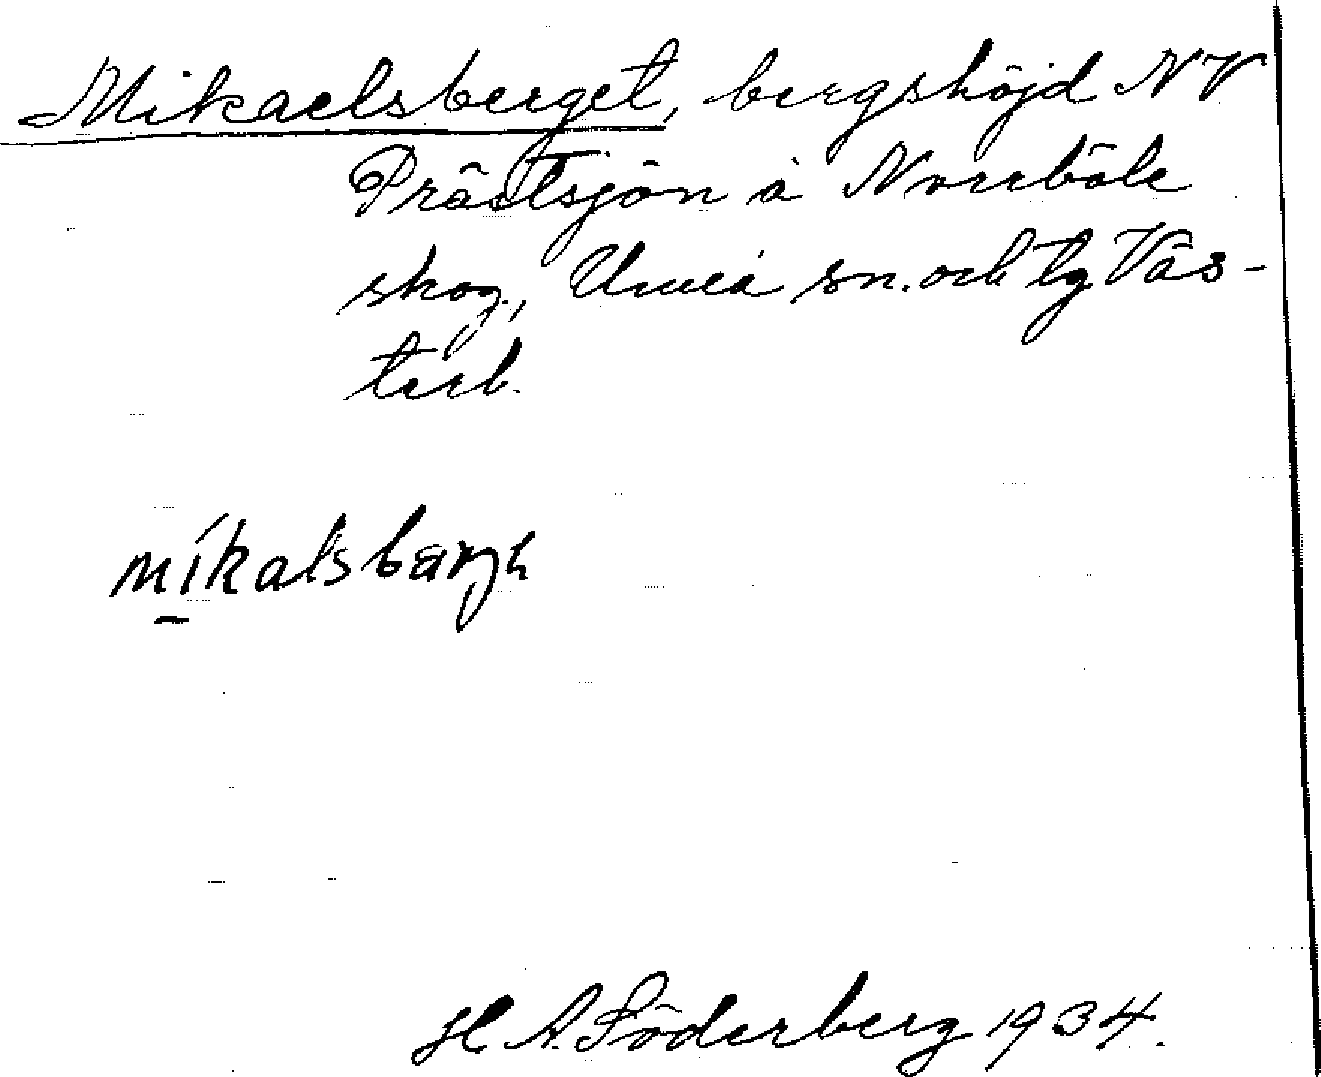 Mikaelsberget, bergshöjd NV
Prästsjön å Norrböle
skog, Umeå sn. och lg Väs-
terb.
mikalsbärjh
H. A. Söderberg 1934.